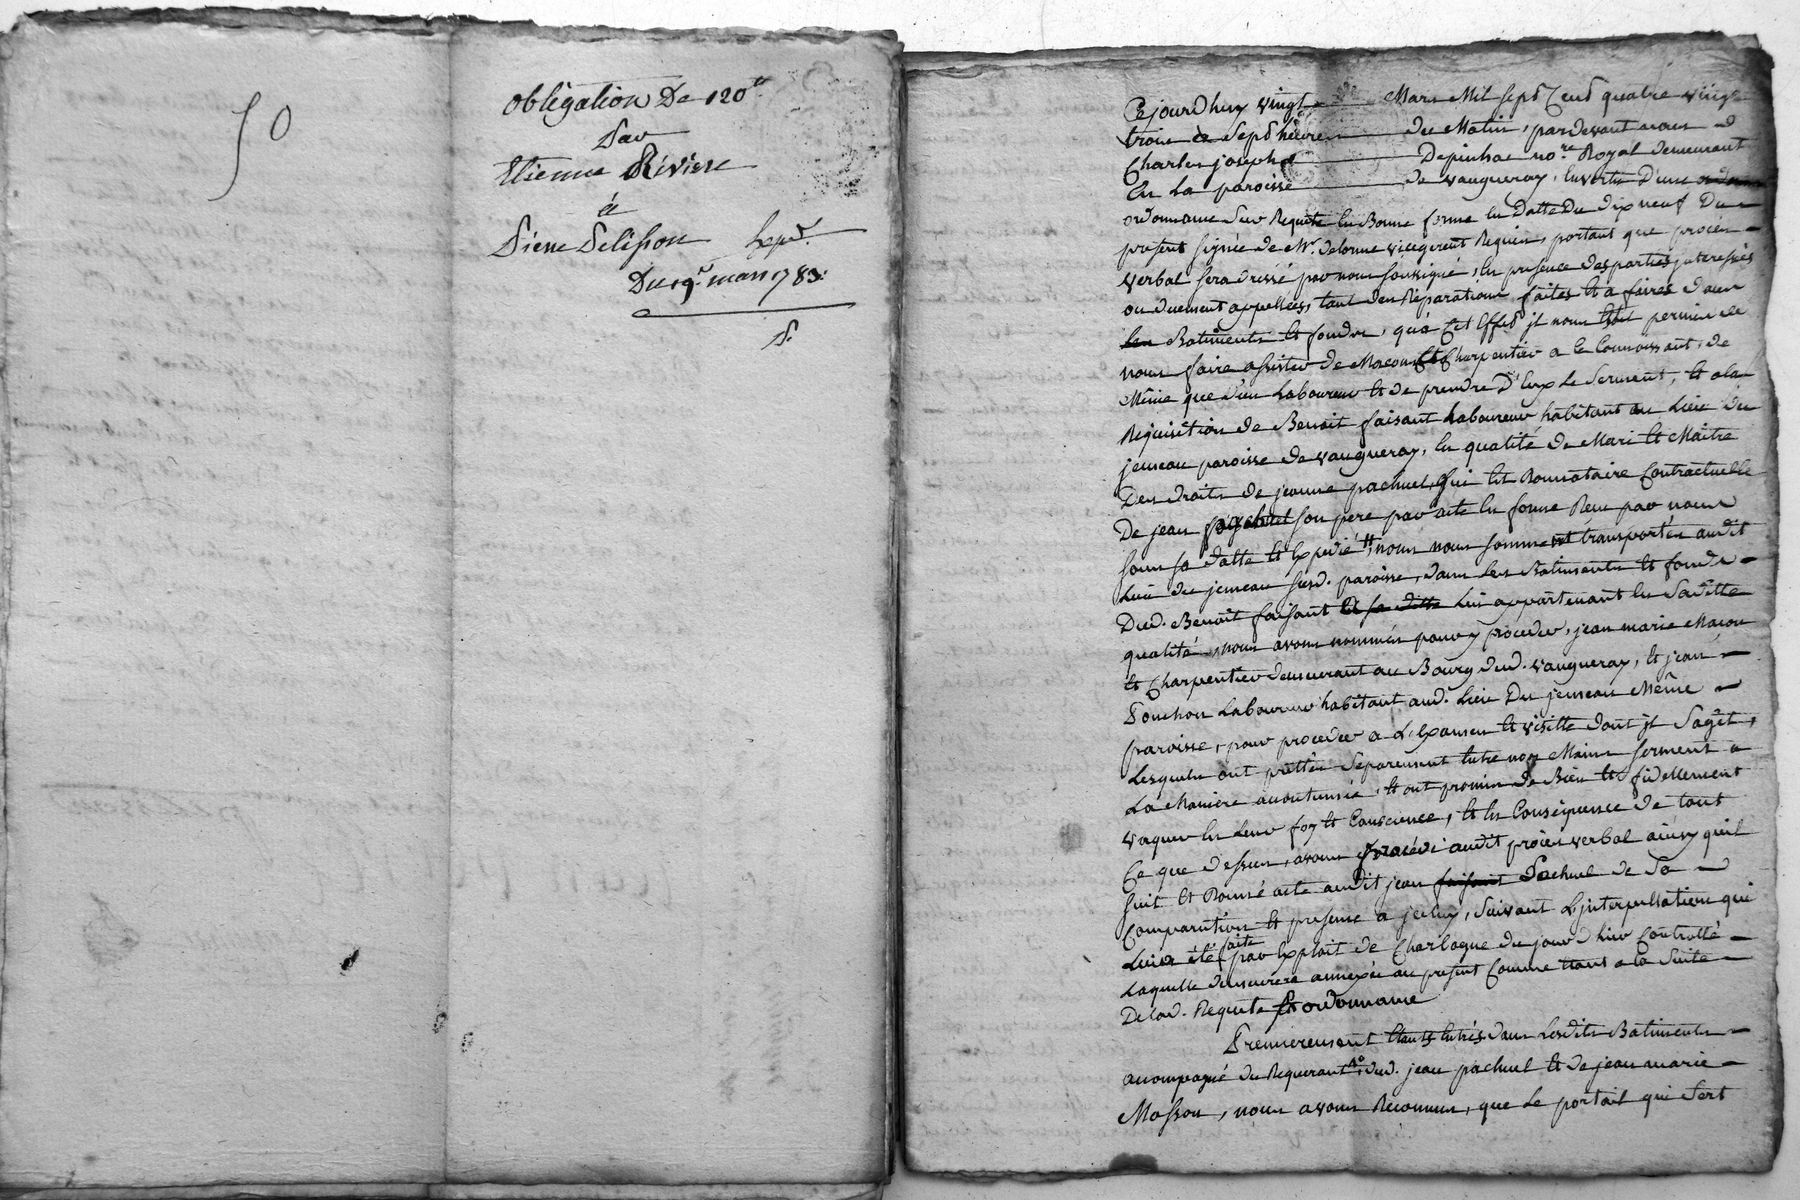 50
obligation De 120tt
Par
Etienne Riviere
à
Pierre Pelisson
Du 19e mars 1783
Cejourdhuy vingt Mars Mil sept Cent quatre vingt
trois a sept heures du Matin, pardevant nous
Charles joseph Depinhac nore Royal demeurant
En La paroisse de vaugneray, En vertu D'une
ordonnance sur Requete En Bonne forme En Datte Du Dix neuf Du
present signée de Mr. delorme vicegerent Requis, portant que procès
verbal sera dressé par nous soussigné, En presence des parties jnteressées
ou duement appellées, tant des Réparations faites Et a faires dans
les Batiments Et fonds, qu'a Cet Effet jl nous Est permis de
nous faire assister de Macon Et Charpentier a ce Connoissant, de
Même que d'un Laboureur Et de prendre D'Eux Le Serment, Et a la
Requisition de Benoit faisant Laboureur habitant au Lieu du
jemeau paroisse de vaugneray, En qualité de Mari Et Maitre
Des droits de jeanne pachuel, qui Est Donnataire Contractuelle
De jean pachuel son pere par acte En forme Reçu par nous
sous sa datte Et Expedié, nous nous sommes transportés audit
Lieu du jemeau susd. paroisse, dans Les Batiments Et fonds
Dud. Benoit faisant Et sa ditte Lui appartenant En Saditte
qualité, nous avons nommés pour y proceder, jean marie Macon
Et Charpentier demeurant au Bourg dud. vaugneray, Et jean
Ponchon Laboureur habitant aud. Lieu Du jemeau Même
paroisse, pour proceder a L'Examen Et visitte dont jl S'agit,
Lesquels ont prettés Separement Entre nos Mains serment a
La Maniere accoutumée, Et ont promis de Bien Et fidellement
vaquer En Leur foy Et Conscience, Et En Consequence de tout
Ce que dessus, avons procédé audit procès verbal ainsy quil
suit Et Donné acte audit jean faisant Pachuel de Sa
Comparution Et presence a jcelui, Suivant L'jnterpellation qui
Lui a été faite par Exploit de Charlogue du jour d'hier Controllé
Laquelle demeurera annexée au present Comme Etant a la Suite
De lad. Requete Et ordonnance
Premierement Etants Entrés dans Lesdits Batiments
acompagné du Requerant, dud. jean pachuel Et de jean marie
Masson, nous avons Reconnus, que Le portail qui Sert